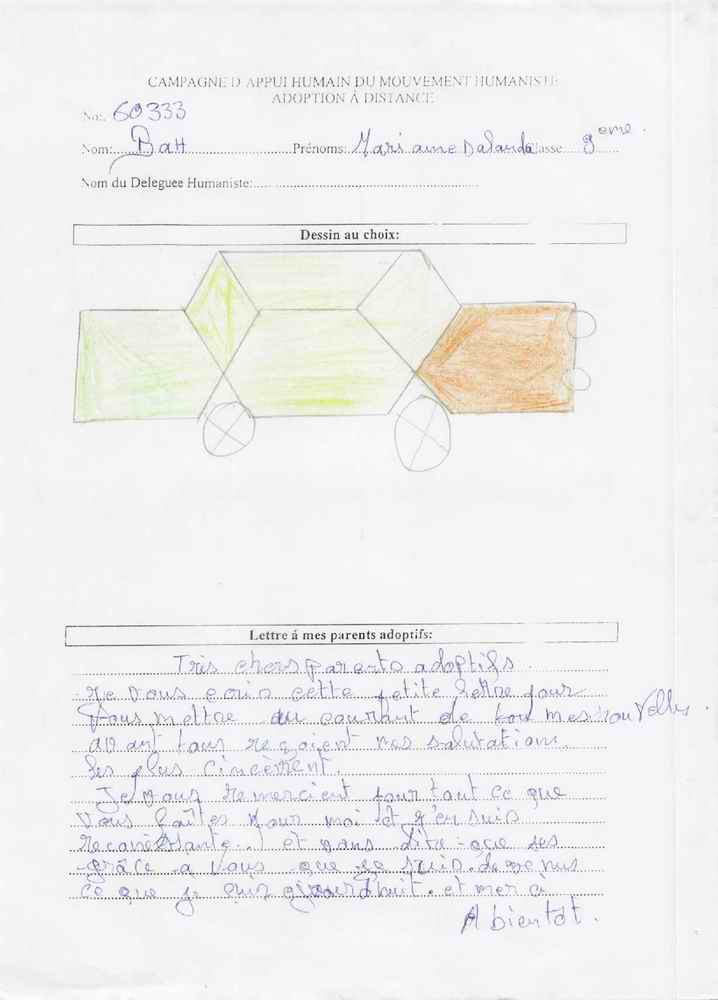 CAMPAGNE D APPUI HUMAIN DU MOUVEMENT HUMANISTE
ADOPTION Á DISTANCE
No: 60333
Nom: Bah Prénoms: Mariame Dalanda Classe 9eme.
Nom du Deleguee Humaniste:
Dessin au choix:
Lettre á mes parents adoptifs:
Tris chers parents adoptifs.
Je vous cette petite lettre pour
Vous mettre au courant de tou mes nouvelles.
avant tous reçoient mes salutations
les plus cincèrent.
Je vous remercient pour tout ce que
vous faîtes pour moi et g'en suis
et vous dite que ses
grâce a vous que je suis devenus
ce que je suis et merci
A bientôt.